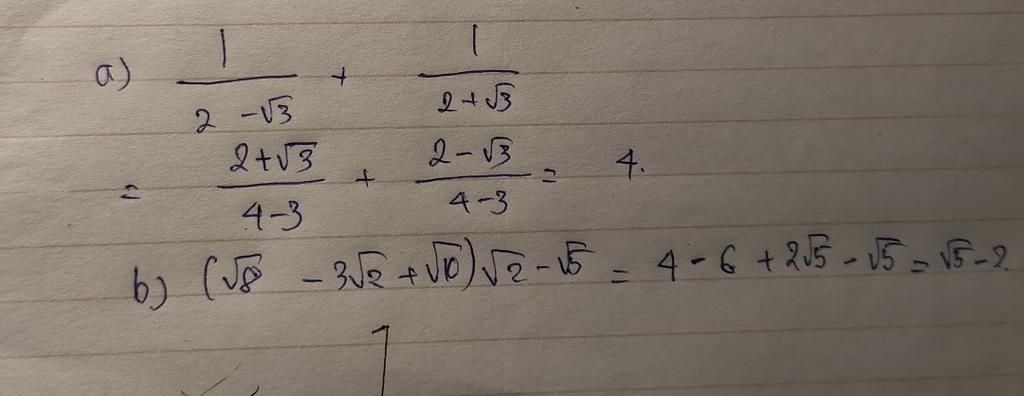 a) 1/(2 - √3) + 1/(2 + √3)
= (2 + √3)/(4 - 3) + (2 - √3)/(4 - 3) = 4.
b) (√8 - 3√2 + √10)√2 - √5 = 4 - 6 + 2√5 - √5 = √5 - 2.